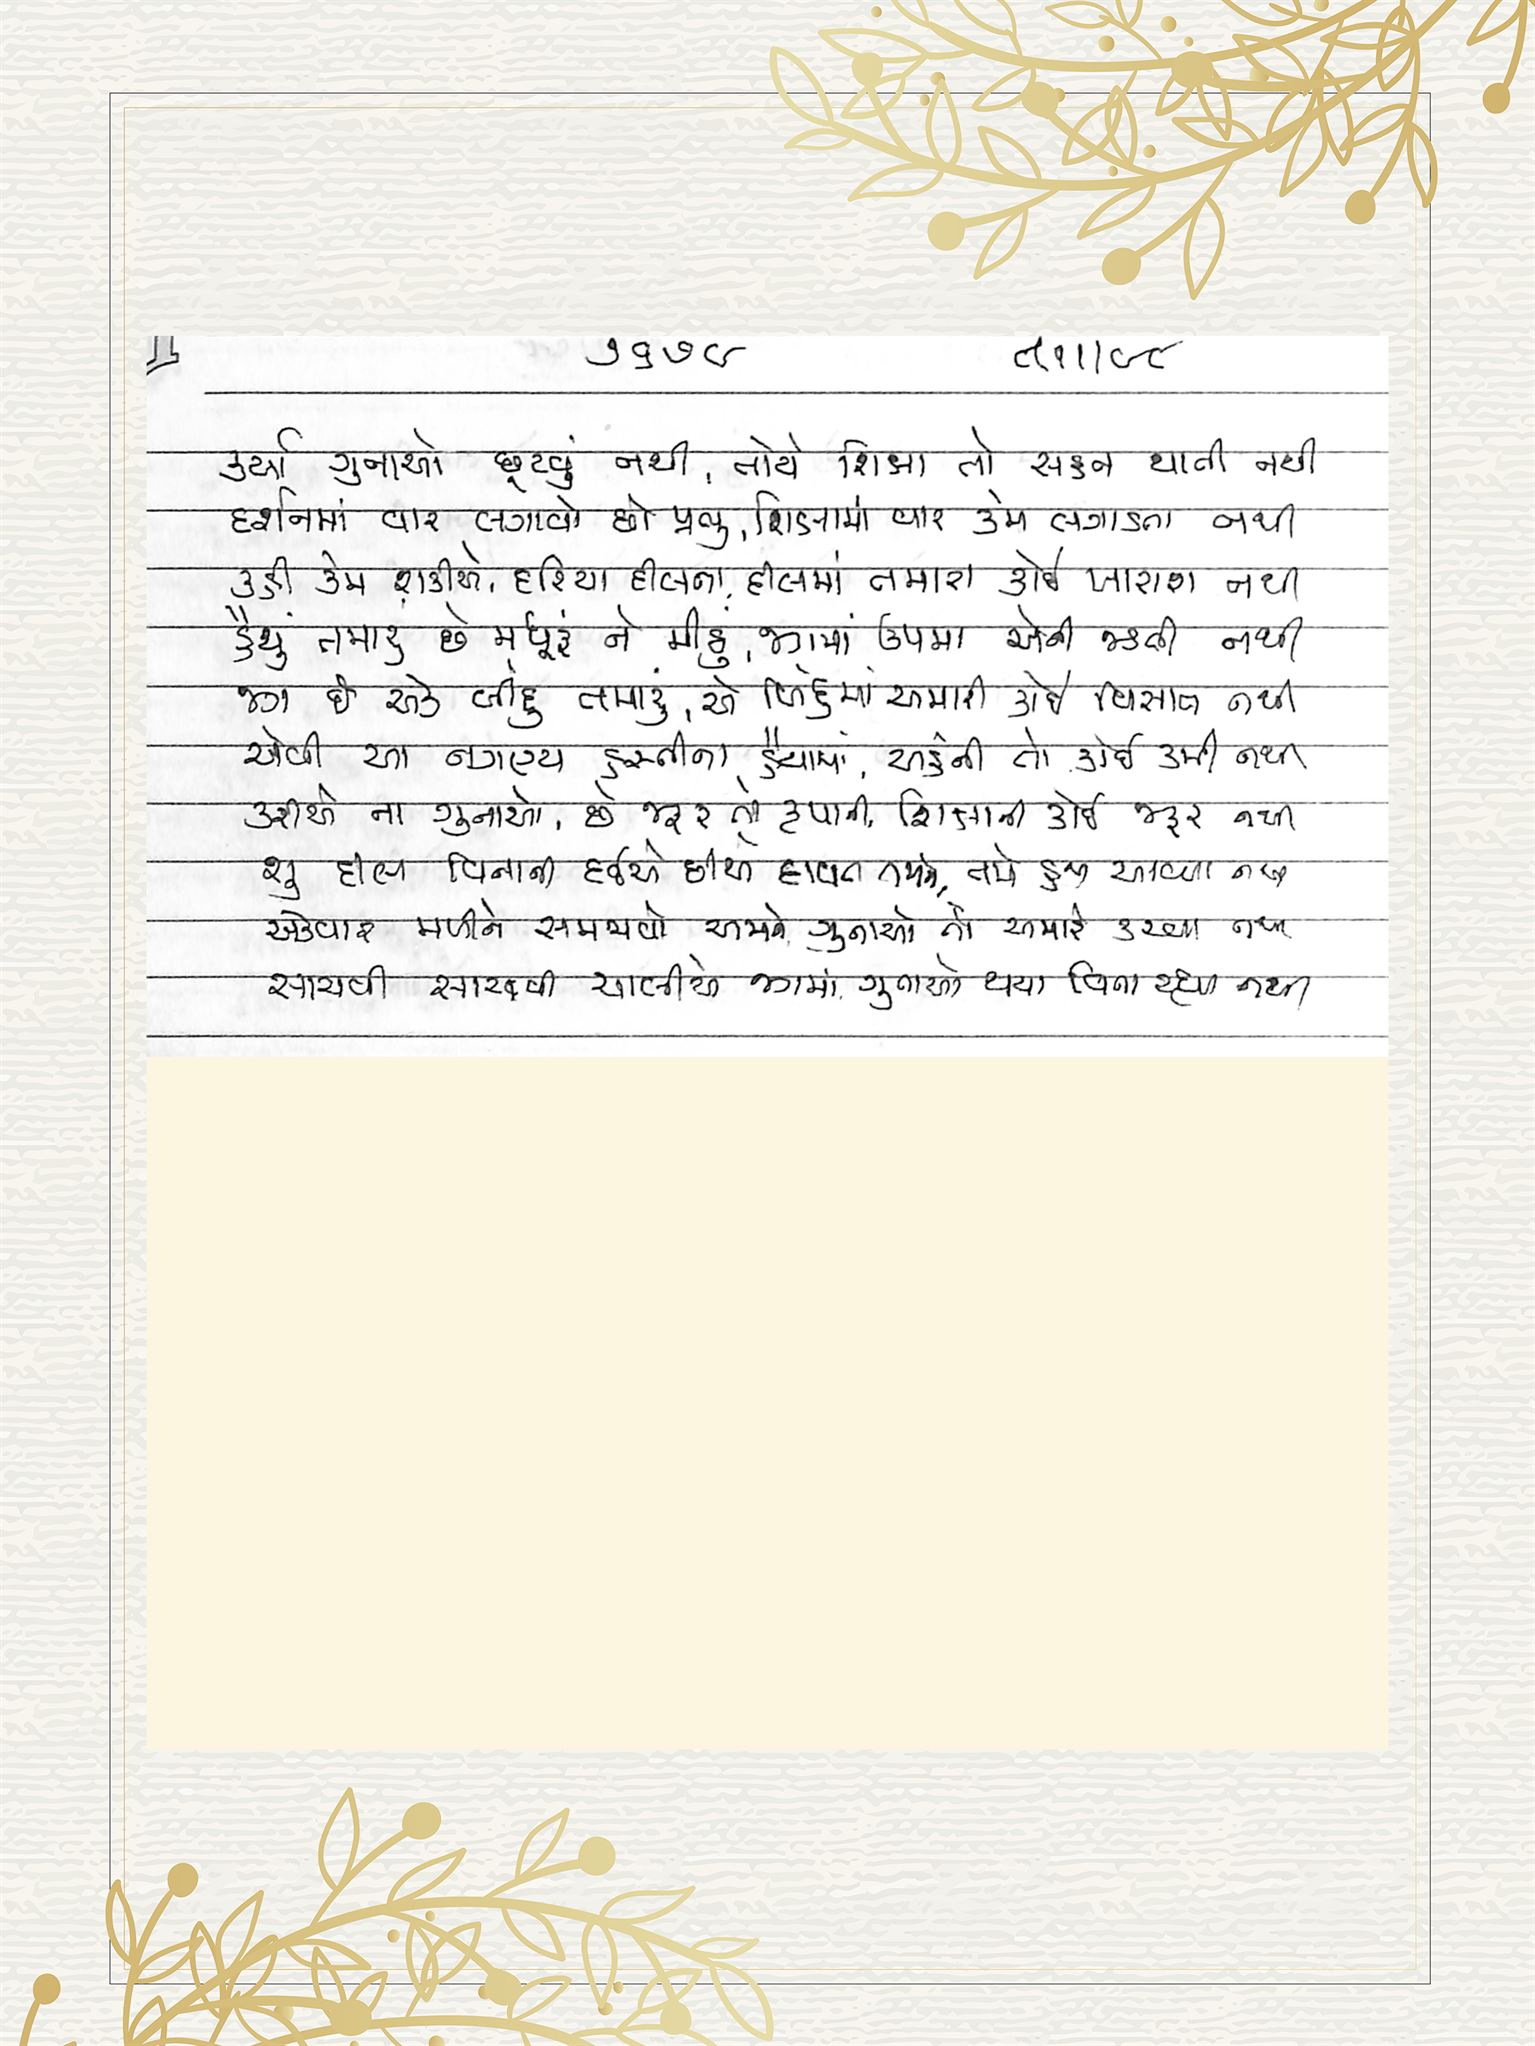 ૭૬૭૯
કર્યા ગુનાઓ છૂટવું નથી, તોયે શિક્ષા તો સહન થાતી નથી
દર્શનમાં વાર લગાવો છો પ્રભુ, શિક્ષામાં વાર કેમ લગાડતા નથી
કહી કેમ શકીએ, દરિયા દીલના, દીલમાં તમારા કોઈ ખારાશ નથી
હૈયું તમારું છે મધૂરૂં ને મીઠું, જગમાં ઉપમા એની જડતી નથી
જગ છે એક બીંદુ તમારું, એ બિંદુમાં અમારી કોઈ વિસાત નથી
એવી આ નગણ્ય હસ્તીના હૈયામાં, અહંની તો કોઈ કમી નથી
કરીએ ના ગુનાઓ, છે જરૂર તો કૃપાની, શિક્ષાની કોઈ જરૂર નથી
શું દીલ વિનાની દઈએ છીએ દાવત તમને, તમે હજી આવ્યા નથી
એકવાર મળીને સમજાવો અમને, ગુનાઓ તો અમારે કરવા નથી
સાચવી સાચવી ચાલીએ જગમાં, ગુનાઓ થયા વિના રહ્યા નથી